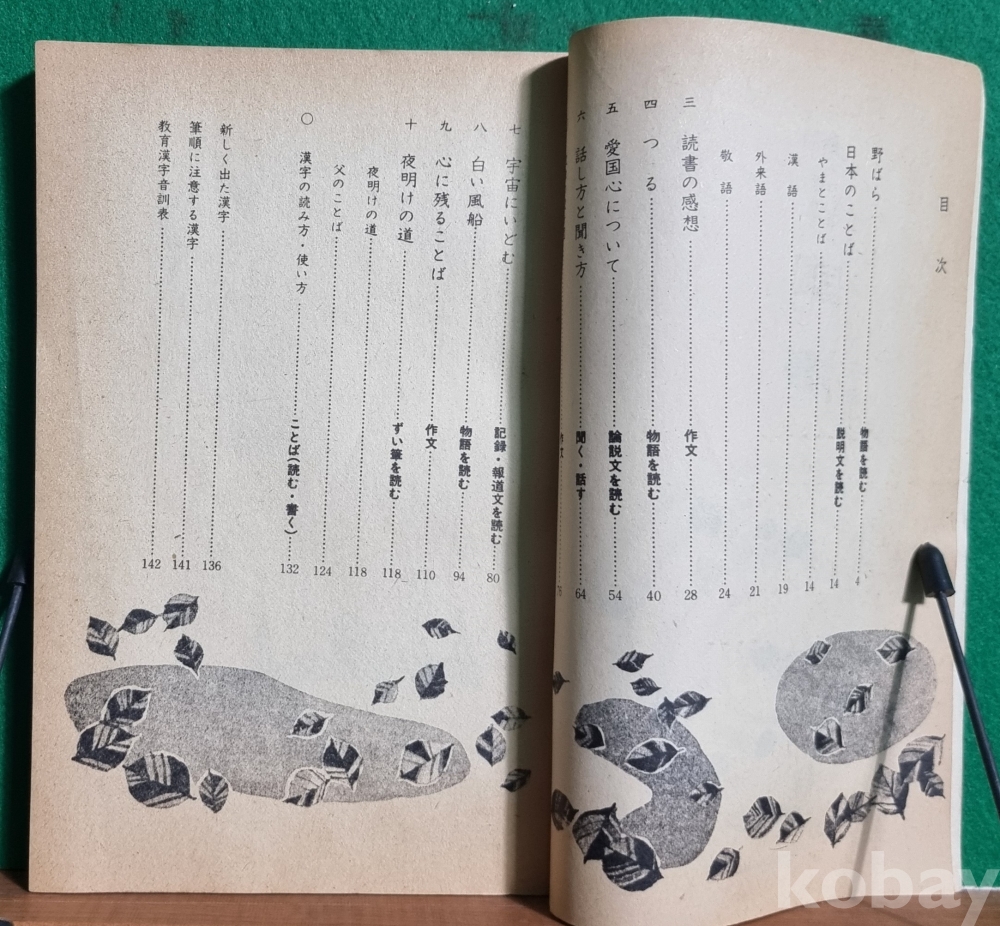 目次
野ばら 物語を読む 4
日本のことば 説明文を読む 14
やまとことば 14
漢語 19
外来語 21
敬語 24
三 読書の感想 作文 28
四 つる 物語を読む 40
五 愛国心について 論説文を読む 54
六 話し方と聞き方 聞く・話す 64
76
七 宇宙にいどむ 記録・報道文を読む 80
八 白い風船 物語を読む 94
九 心に残ることば 作文 110
十 夜明けの道 ずい筆を読む 118
夜明けの道 118
父のことば 124
〇 漢字の読み方・使い方 ことば(読む・書く) 132
新しく出た漢字 136
筆順に注意する漢字 141
教育漢字音訓表 142
kobay